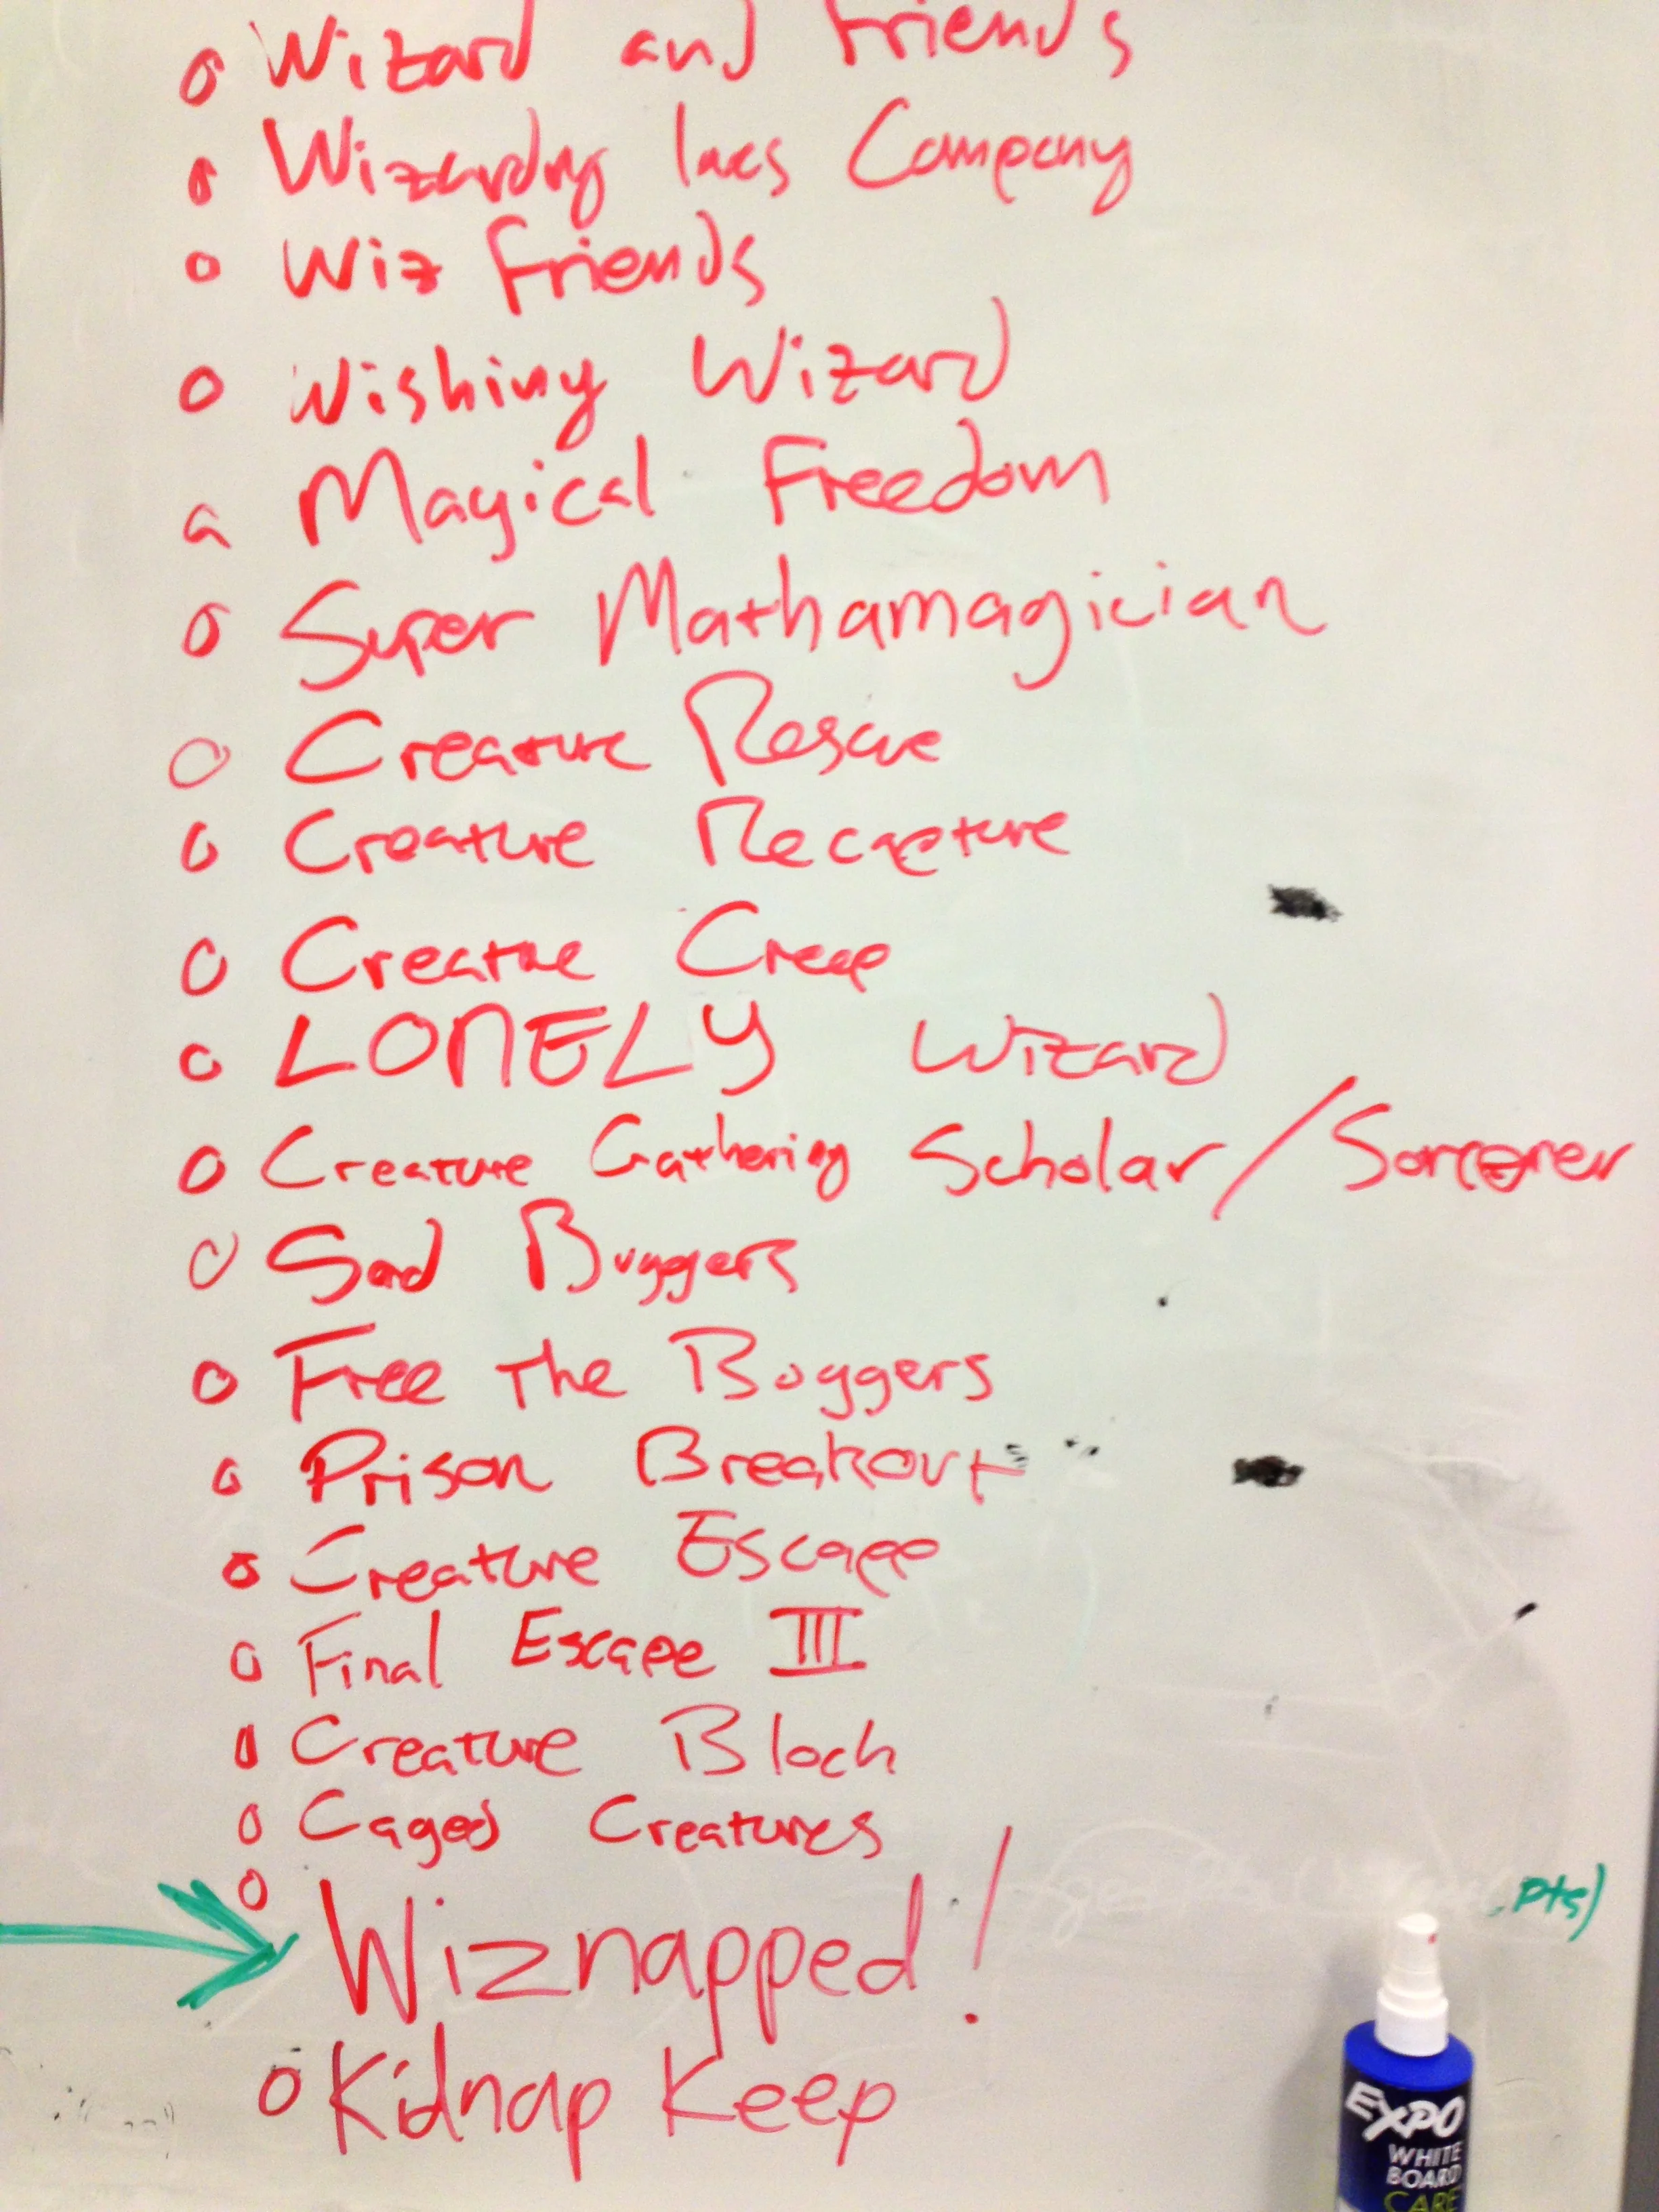 Wizard and Friends
Wizardry Company
Wiz Friends
Wishing Wizard
Magical Freedom
Super Mathamagician
Creature Rescue
Creature Recapture
Creature Creep
LONELY Wizard
Creature Gathering Scholar/Sorcerer
Sad Buggers
Free The Buggers
Prison Breakout
Creature Escape
Final Escape III
Creature Block
Caged Creatures
Wiznapped!
pts)
Kidnap Keep
EXPO
WHITE
BOARD
CARE